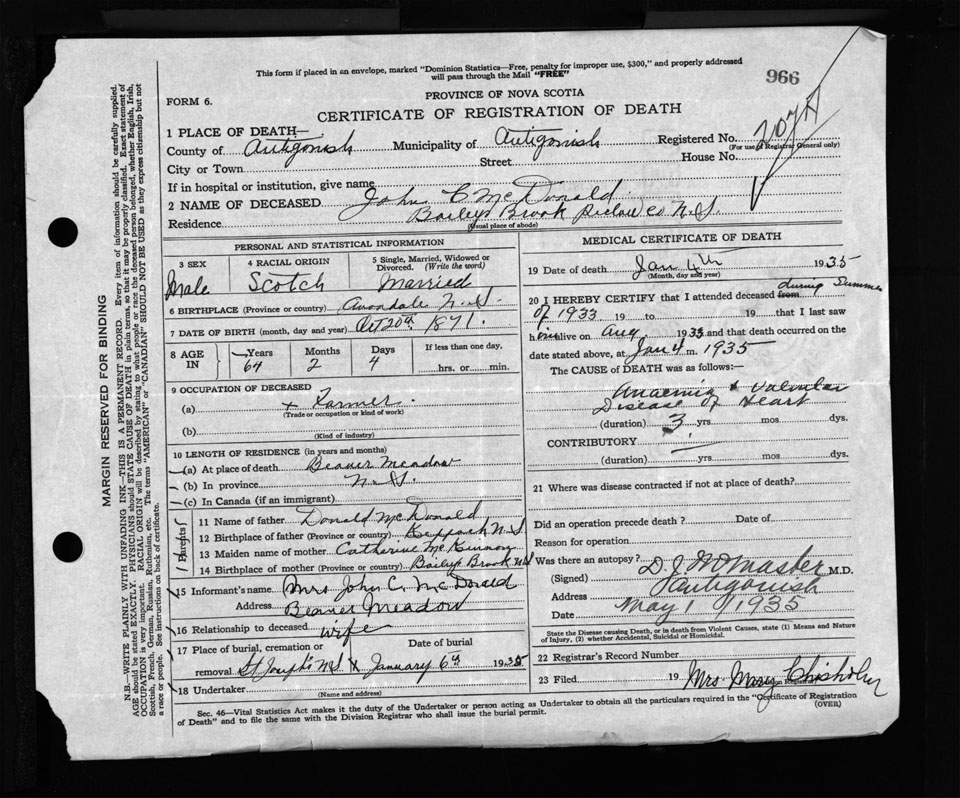 This form if placed in an envelope, marked "Dominion Statistics—Free, penalty for improper use, $300," and properly addressed
will pass through the Mail "FREE"
966
FORM 6.
PROVINCE OF NOVA SCOTIA
CERTIFICATE OF REGISTRATION OF DEATH
207A
1 PLACE OF DEATH—
County of Antigonish Municipality of Antigonish Registered No.
(For use of Registrar General only)
City or Town Street House No.
If in hospital or institution, give name
2 NAME OF DECEASED John C McDonald
Residence Baileys Brook Pictou Co N.S.
(Usual place of abode)
PERSONAL AND STATISTICAL INFORMATION
3 SEX 4 RACIAL ORIGIN 5 Single, Married, Widowed or Divorced. (Write the word)
Male Scotch Married
6 BIRTHPLACE (Province or country) Avondale N.S.
7 DATE OF BIRTH (month, day and year) Oct 20th 1871.
8 AGE IN Years Months Days If less than one day,
64 2 4 hrs. or min.
9 OCCUPATION OF DECEASED
(a) Farmer
(Trade or occupation or kind of work)
(b)
(Kind of industry)
10 LENGTH OF RESIDENCE (in years and months)
(a) At place of death Beaver Meadow
(b) In province N.S.
(c) In Canada (if an immigrant)
Parents
11 Name of father Donald McDonald
12 Birthplace of father (Province or country) Keppoch N.S
13 Maiden name of mother Catherine McKinnon
14 Birthplace of mother (Province or country) Bailys Brook N.S
15 Informant's name Mrs John C. McDonald
Address Beaver Meadow
16 Relationship to deceased wife
17 Place of burial, cremation or Date of burial
removal St Joseph's N.S January 6th 1935
18 Undertaker
(Name and address)
MEDICAL CERTIFICATE OF DEATH
19 Date of death Jan 4th 1935
(Month, day and year)
20 I HEREBY CERTIFY that I attended deceased from during Summer
of 1933 19 to 19 that I last saw
him alive on Aug. 1933 and that death occurred on
date stated above, at Jan 4 m. 1935
The CAUSE of DEATH was as follows:—
Anaemia & Valvular
Disease of Heart
(duration) 3 yrs. mos. dys.
CONTRIBUTORY
(duration) yrs. mos. dys.
21 Where was disease contracted if not at place of death?
Did an operation precede death? Date of
Reason for operation
Was there an autopsy?
(Signed) M.D.
Address Antigonish
Date May 1 1935
State the Disease causing Death, or in death from Violent Causes, state (1) Means and Nature
of Injury, (2) whether Accidental, Suicidal or Homicidal.
22 Registrar's Record Number
23 Filed 19 Mrs. Mary Chisholm
Sec. 46—Vital Statistics Act makes it the duty of the Undertaker or person acting as Undertaker to obtain all the particulars required in the "Certificate of Registration
of Death" and to file the same with the Division Registrar who shall issue the burial permit.
(OVER)
MARGIN RESERVED FOR BINDING
N.B.—WRITE PLAINLY WITH UNFADING INK—THIS IS A PERMANENT RECORD. Every item of information should be carefully supplied.
AGE should be stated EXACTLY. PHYSICIANS should STATE CAUSE OF DEATH in plain terms, so that it may be properly classified. Exact statement of
OCCUPATION is very important. RACIAL ORIGIN will be described by stating to what people or race the deceased person belonged, whether English, Irish,
Scottish, French, German, Russian, Ruthenian, etc. The terms "AMERICAN" or "CANADIAN" SHOULD NOT BE USED as they express citizenship but not
a race or people. See instructions on back of certificate.